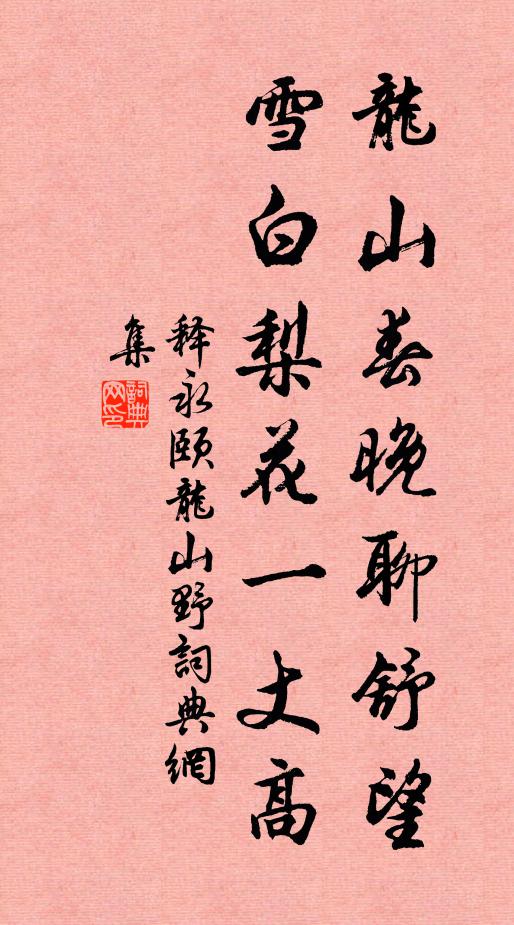 龍山春晚聊舒望
雪白梨花一丈高
释永頤龍山野詞典網
集
詞典網印